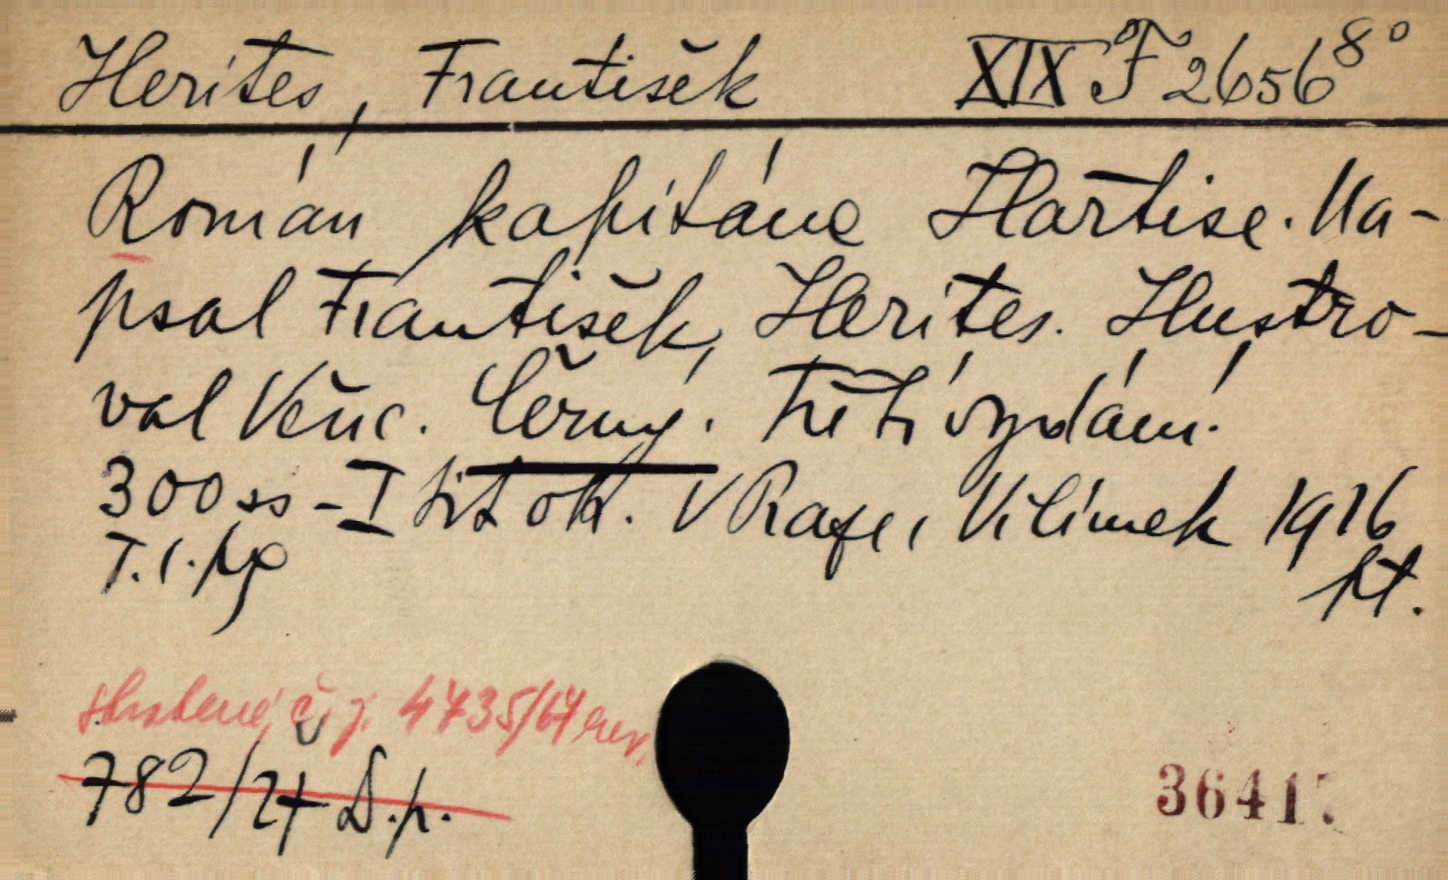 Herites, František XIX F 2656 8°
Román kapitána Hartise. Na-
psal František Herites. Ilustro-
val Věnc. Černý. Třetí vydání.
300 ss - I tit ob. V Praze, Vilímek 1916
pt.
ztracené č. j. 4735/64 rev.
782/27 D.p.
3641